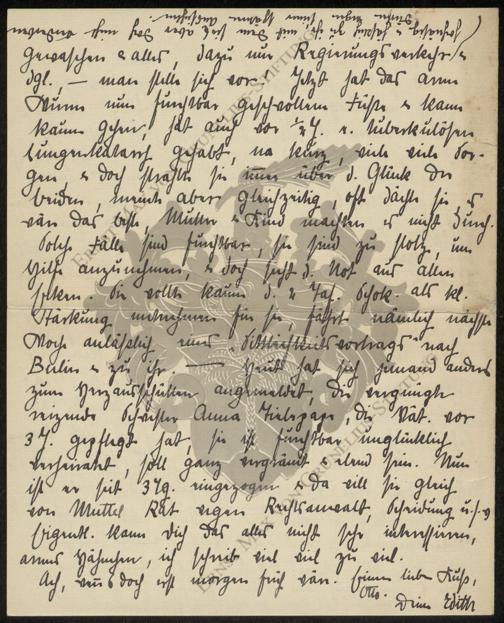 gewaschen & alles, dazu nur Regierungsverkehr &
dgl., – man stelle sich vor! Jetzt hat das arme
Wurm nun furchtbar geschwollene Füsse & kann
kaum gehen, hat auch vor ½ J. e. tuberkulösen
Lungenkatarrh gehabt, na kurz, viele viele Sor-
gen & doch strahlte sie immer über d. Glück der
beiden, meinte aber gleichzeitig, oft dächte sie, es
wär das beste, Mutter & Kind machten es nicht durch.
Solche Fälle sind furchtbar, sie sind zu stolz, um
Hilfe anzunehmen, & doch sieht d. Not aus allen
Ecken. Sie wollte kaum d. Schok. als kl.
Stärkung mitnehmen für sie, fährt nämlich nächste
Woche anlässlich eines vortrags nach
Berlin & zu ihr. — Heute hat sich jemand anders
zum Herzausschütten angemeldet, die vergnügte
reizende Schwester Anna, die Vat. vor
3 J. gepflegt hat, sie ist furchtbar unglücklich
verheiratet, soll ganz vergrämt & elend sein. Nun
ist er seit 3 Tg. eingezogen & da will sie gleich
von Muttel Rat wegen Rechtsanwalt, Scheidung u.s.w.
Eigentl. kann Dich das alles nicht sehr interessieren,
armes Hähnchen, ich schreib viel viel zu viel.
Ach, wenn's doch erst morgen früh wär. Einen lieben Kuss,
Otto.
Deine Edith